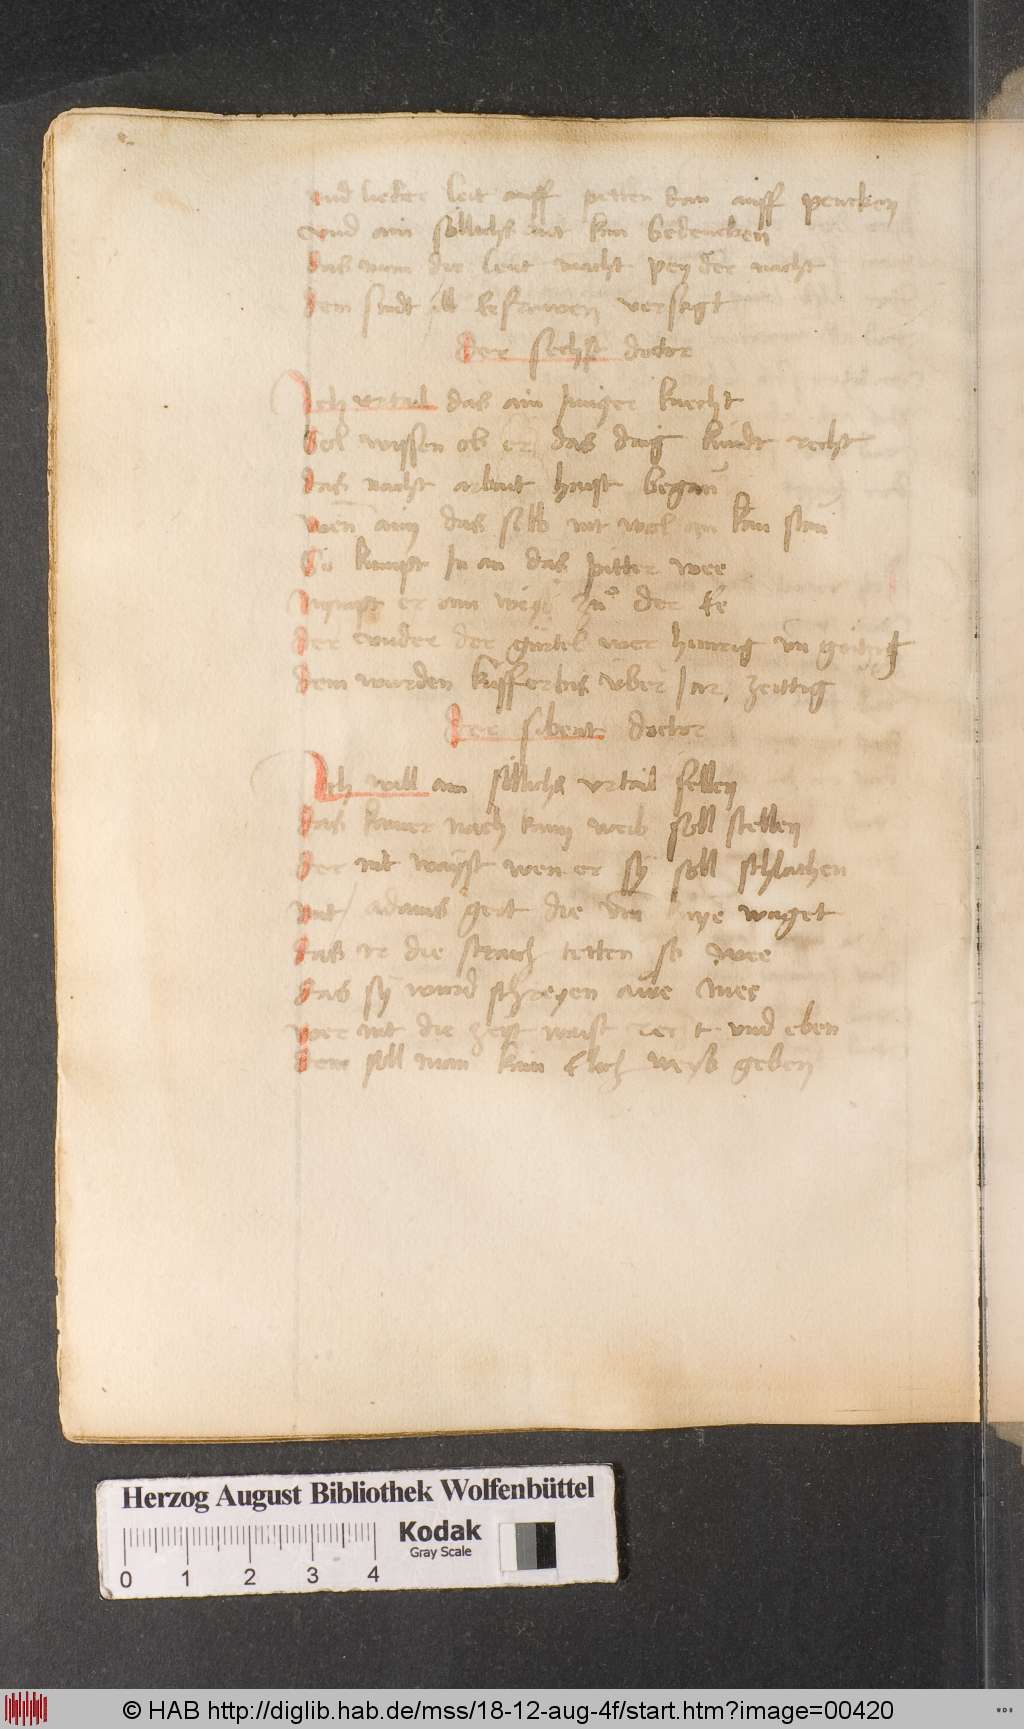 und lieber leit auff petten dan auff pencken
Vnd ain söllichs nit kan bedencken
das man die leut macht pey der nacht
dem sindt all kefrawen versagt
der sechst doctor
Ich urtail das ain junger knecht
Sol wissen ob er das ding kündt recht
das nacht arbait haist began
wen aim das selb nit wol an kan stan
So kumpt In an das pitter wee
Nympt er ain weyb zu der Ee
der vnder der gürtel wer hunrig vn geittig
dem wurden kifferbis über Jar zeittig
der sibent doctor
Ich will ain söllichs urtail fellen
das kainer nach kaim weib soll stellen
der nit wayst wen er sy soll schlachen
mit adams gert die vm waget
das ir die straich tetten so wee
das sy wurd schreyen awe mee
wer nit die zeyt waist recht und eben
dem soll man kain Elich weyb geben
Herzog August Bibliothek Wolfenbüttel
Kodak
Gray Scale
0 1 2 3 4
© HAB http://diglib.hab.de/mss/18-12-aug-4f/start.htm?image=00420